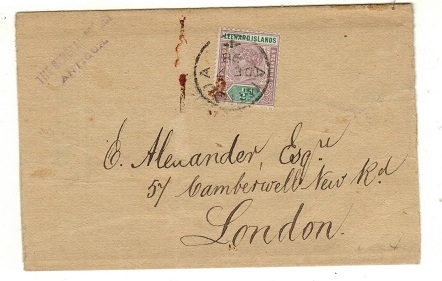 ANTIGUA
LEEWARD ISLANDS
E. Alexander, Esqre
57 Camberwell New Rd
London.